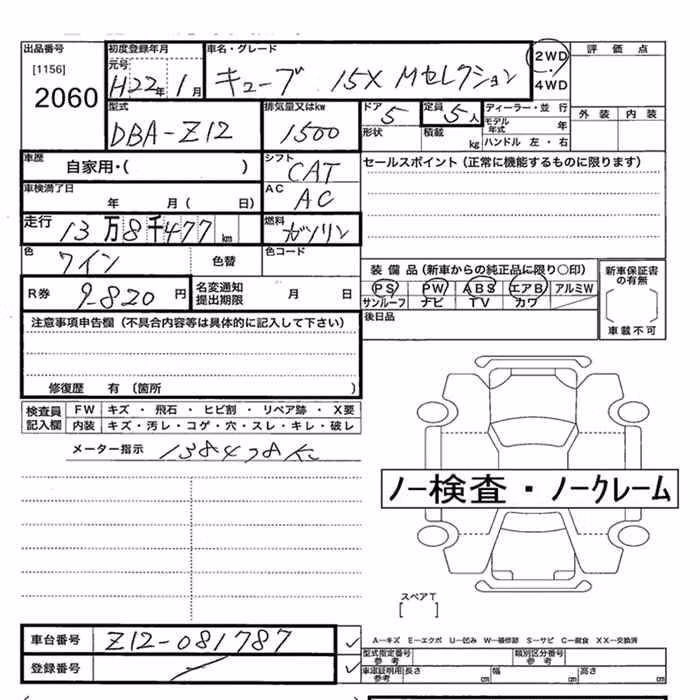 出品番号 初度登録年月 車名・グレード 2WD 評価点
[1156] 元号 H22年 1月 キューブ 15X Mセレクション 4WD
2060 型式 排気量又はkw ドア 5 定員 5人 ディーラー・並行 外装 内装
DBA-Z12 1500 形状 積載 kg モデル年式 年
ハンドル 左・右
車歴 自家用・( ) シフト CAT セールスポイント(正常に機能するものに限ります)
車検満了日 年 月( 日) AC AC
走行 13万8千477km 燃料 ガソリン
色 ワイン 色替 色コード 装備品(新車からの純正品に限り○印) 新車保証書の有無
R券 9820円 名変通知提出期限 月 日 PS PW ABS エアB アルミW
サンルーフ ナビ TV カワ
注意事項申告欄(不具合内容等は具体的に記入して下さい) 後日品 車載不可
修復歴 有(箇所 )
検査員記入欄 FW キズ・飛石・ヒビ割・リペア跡・X要
内装 キズ・汚レ・コゲ・穴・スレ・キレ・破レ
メーター指示 138478K
ノー検査・ノークレーム
スペアT
[ ]
車台番号 Z12-081787 A-キズ E-エクボ U-凹み W-補修跡 S-サビ C-腐食 XX-交換済
型式指定番号 参考 類別区分番号 参考
登録番号 車庫証明用参考 長さ cm 幅 cm 高さ cm